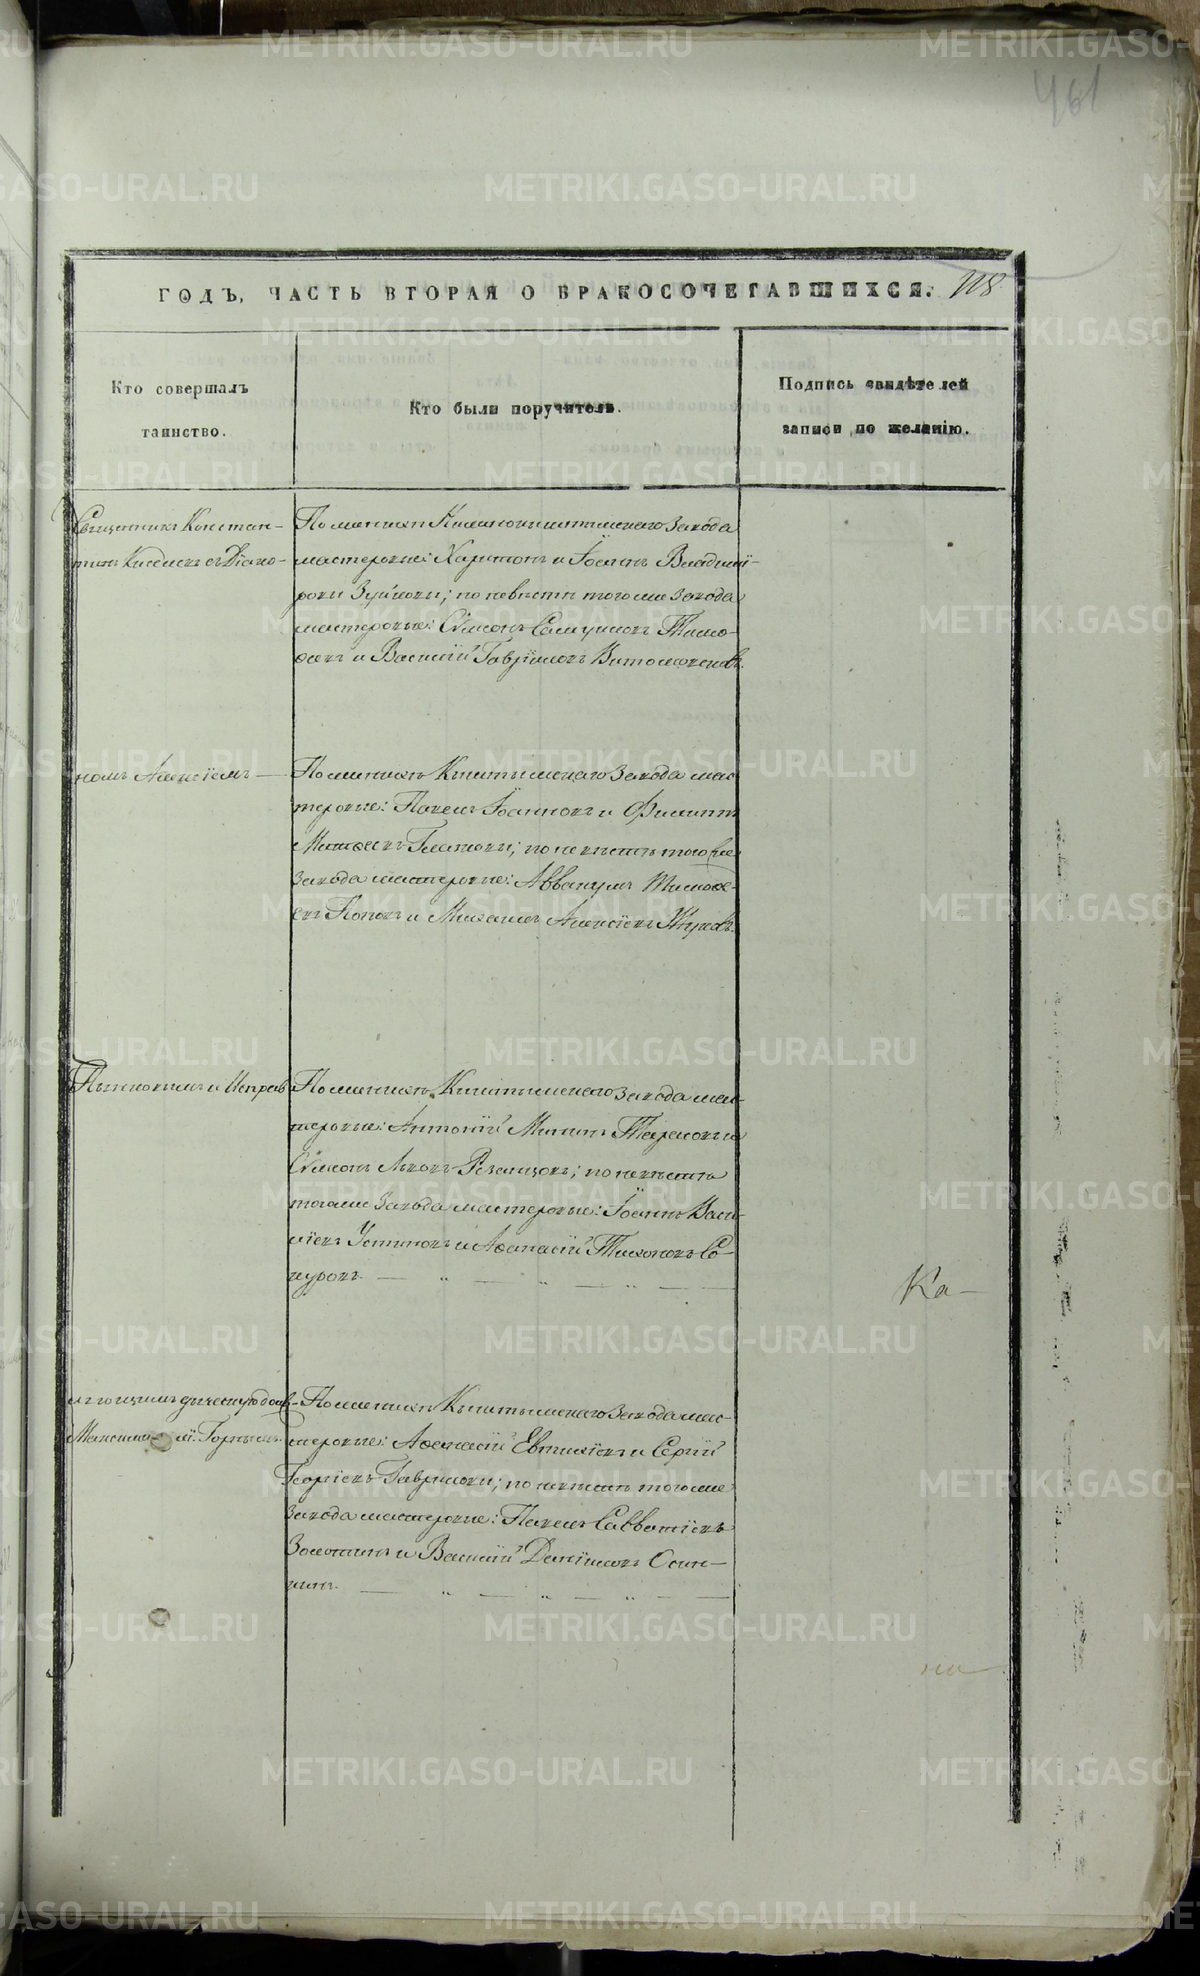 461
ГОДЪ, ЧАСТЬ ВТОРАЯ О БРАКОСОЧЕТАВШИХСЯ. 228
Кто совершалъ
таинство.
Кто были поручители.
Подпись свидѣтелей
записи по желанію.
Священникъ Констан-
тинъ Киселевъ съ Діако-
По женихѣ
мастеровые: Харитонъ и Іоаннъ Владимі-
ровы Зуйковы; по невѣстѣ тогоже завода
мастеровые: Сѵмеонъ Тимо-
ѳеевъ и Василій Гавріиловъ
номъ Алексіемъ —
По женихѣ Кыштымскаго завода мас-
теровые: Павелъ Іоанновъ и Филиппъ
по невѣстѣ того же
завода мастеровые: Аввакумъ Тимоѳе-
евъ Поповъ и Михаилъ Алексіевъ Жуковъ.
и Исправ
По женихѣ Кыштымскаго завода мас-
теровые: Антоній Мининъ и
Сѵмеонъ Львовъ Рѣзанцовъ; по невѣстѣ
тогоже завода мастеровые: Іоаннъ Васи-
ліевъ Устиновъ и Аѳанасій Тихоновъ Со-
Ка-
ляющимъ должн
Горнымъ
По женихѣ Кыштымскаго завода мас-
теровые: Аѳанасій Евтихіевъ и Сергій
Георгіевъ Гавриловы; по невѣстѣ тогоже
завода мастеровые: Павелъ Савватіевъ
Золотинъ и Василій Даніиловъ Осин-
нинъ.
на
METRIKI.GASO-URAL.RU